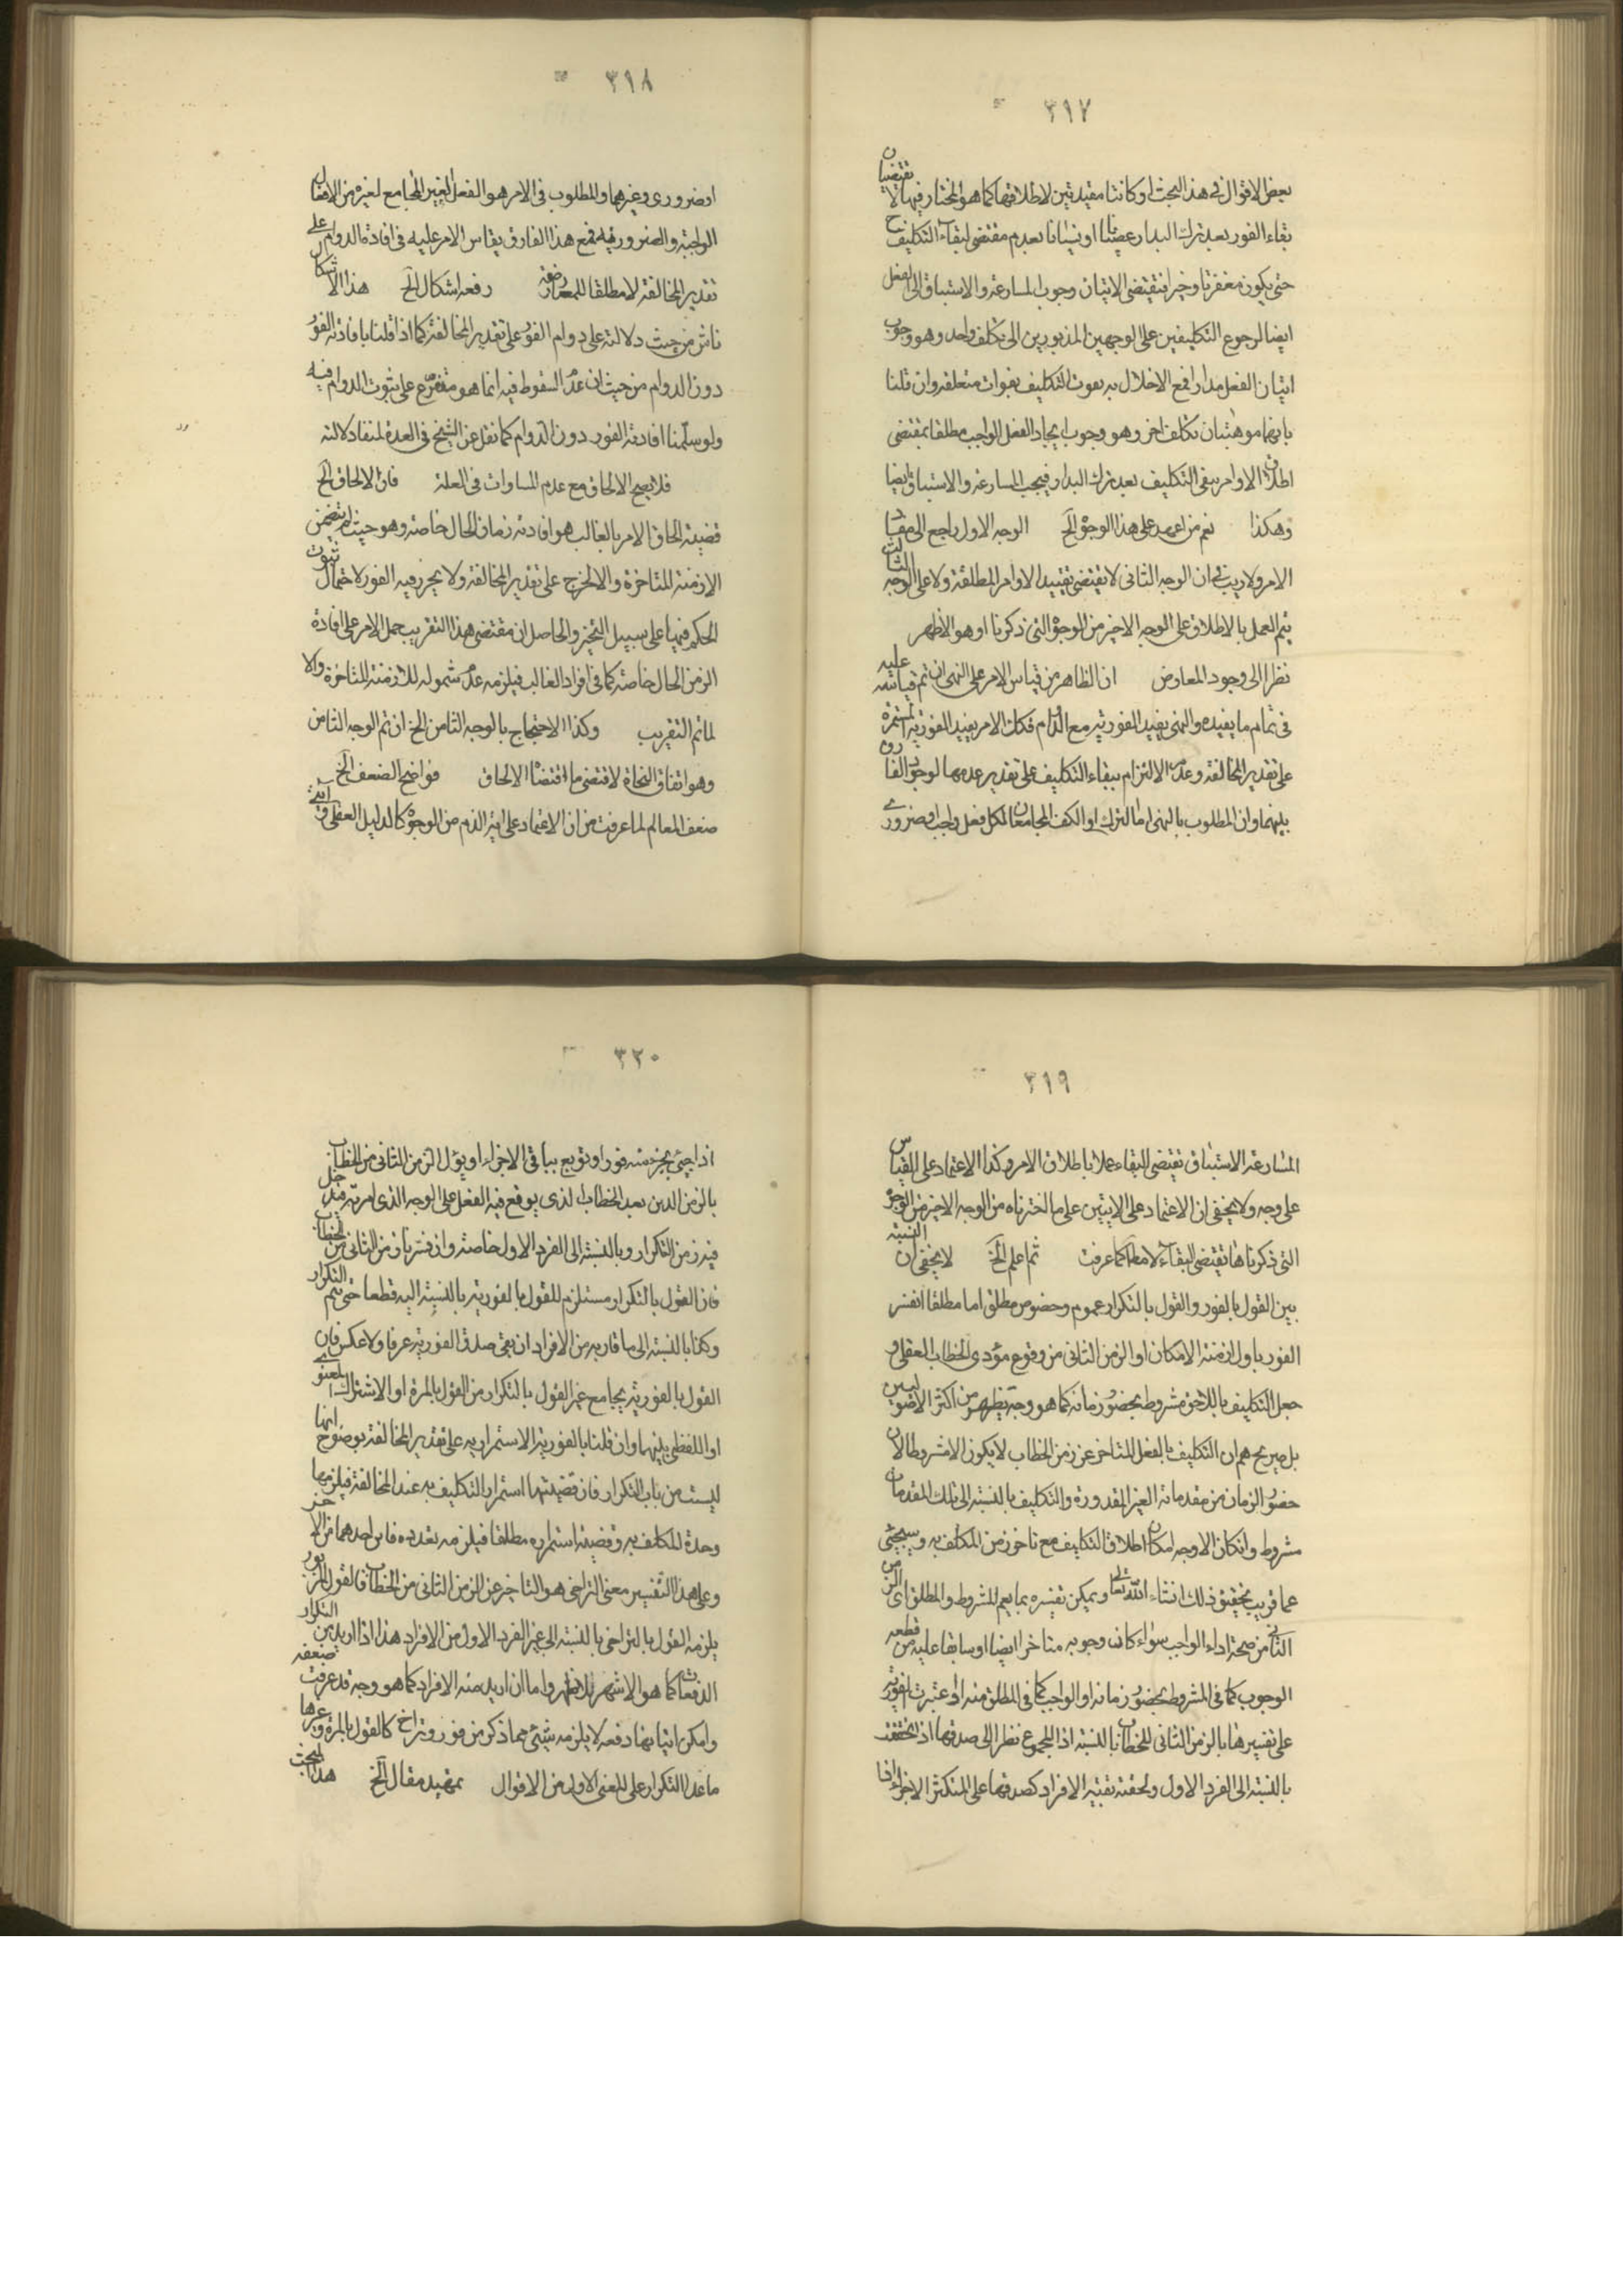 ٣١٧
بعض الاقوال في هذا البحث او كانتا مقيدتين لاطلاقها كما هو المختار فيها لا تقتضيان
بقاء الفور بعد ترك البدار عصيانا او نسيانا بعدم مقتضى لبقاء التكليف ح
حتى يكون مغفرتا وخيرا فتقتضى الاتيان وجوب المسارعة والاستباق الى الفعل
ايضا لرجوع التكليفين على الوجهين المذبورين الى تكلف واحد وهو وجوب
اتيان الفعل مدارا فمع الاخلال به يفوت التكليف بفوات متعلقه وان قلنا
بانهما موهبتان تكلف اخر وهو وجوب ايجاد الفعل الواجب مطلقا بمقتضى
اطلاق الاوامر يبقى التكليف بعد ترك البدار فيجب المسارعة والاستباق ايضا
وهكذا نعم من اعتمد على هذا الوجوه الخ الوجه الاول راجع الى مفاد
الامر ولا ريب في ان الوجه الثانى لا تقتضى تقييد الاوامر المطلقة ولا على الوجه الثالث
يتم العمل بالاطلاق على الوجه الاخير من الوجوه التى ذكرنا او هو الاظهر
نظرا الى وجود المعارض ان الظاهر من قياس الامر على النهى ان تم قياسه عليه
فى تمام ما يفيده والنهى يفيد الفورية مع الدوام فكان الامر يفيد الفورية المستمرة
على تقدير المخالفة وعدم الالتزام ببقاء التكليف على تقدير عدمها لوجود الفارق
بينهما وان المطلوب بالنهى اما الترك او الكف المجامعان لكل فعل واجب او ضرورى
٣١٨
او ضرورى وغيرهما والمطلوب فى الامر هو الفعل الغير المجامع لغيره من الافعال
الواجبة والضرورية فمع هذا الفارق يقاس الامر عليه فى افادة الدوام على
تقدير المخالفة لا مطلقا للمعارضة رفعه اشكال الخ هذا الاشكال
ناش من حيث دلالته على دوام الفور على تقدير المخالفة كما اذا قلنا بافادته الفور
دون الدوام من حيث ان عدم السقوط فيه انما هو متفرع على ثبوت الدوام فيه
ولو سلمنا افادته الفور دون الدوام كما نقل عن الشيخ فى العدة لمنفاد دلالته
فلا يصح الالحاق مع عدم المساوات فى العلة فان الالحاق الخ
قضية الحاق الامر بالغالب هو افادته زمان الحال خاصة وهو حيث لم يتضمن
الازمنة المتاخرة والا لخرج على تقدير المخالفة ولا يحرز فيه الفور لاحتمال ثبوت
الحكم فيها على سبيل التخير والحاصل ان مقتضى هذا التقريب حمل الامر على افادة
الزمن الحال خاصة كما فى افراد الغالب فيلزمه عدم شموله للازمنة المتاخرة والا
لما تم التقريب وكذا الاحتجاج بالوجه الثامن الخ ان تم الوجه الثامن
وهو اتفاق النحاة لاقتضى ما اقتضاه الالحاق فواضح الضعف الخ
ضعف المعالم لما عرفت من ان الاعتماد على آية الذم من الوجوه كالدليل العقلى وآيتى
٣١٩
المسارعة الاستباق تقتضى البقاء عملا باطلاق الامر وكذا الاعتماد على القياس
على وجه ولا يخفى ان الاعتماد على الايتين على ما اخترناه من الوجه الاخير من الوجوه
التى ذكرناها تقتضى البقاء لا مطلقا كما عرفت ثم اعلم الخ لا يخفى ان النسبة
بين القول بالفور والقول بالتكرار عموم وخصوص مطلق اما مطلقا ان فسر
الفور باول ازمنة الامكان او الزمن الثانى من وقوع مؤدى الخطاب العقلى و
جعل التكليف باللاحق مشروط بحضور زمانه كما هو وجه يظهر من اكثر الاصوليين
بل صريح هم ان التكليف بالفعل المتاخر عن زمن الخطاب لا يكون الا مشروطا لان
حضور الزمان من مقدماته الغير المقدورة والتكليف بالنسبة الى تلك المقدمات
مشروط وان كان الاوجه امكان اطلاق التكليف مع تاخر زمن المكلف به وسيجئ
عما قريب تحقيق ذلك انشاء الله تعالى ويمكن تفسيره بما يعم المشروط والمطلق اى الزمن
الثانى من صحة اداء الواجب سواء كانت وجوبه متاخرا ايضا او سابقا عليه من قطعه
الوجوب كما فى المشروط بحضور زمانه او الواجب كما فى المطلق منه اذ اعتبرت الفورية
على تفسيرها بالزمن الثانى للخطاب بالنسبة اذ المجموع نظرا الى صدقها اذ تحققت
بالنسبة الى الفرد الاول ولحقته بقية الافراد كصدقها على المتكثر الاجزاء اذا
٣٢٠
اذا جئ بجزء منه فورا وتوبع بباقى الاجزاء او يؤل الزمن الثانى من الخطاب
بالزمن الذين بعد الخطاب الذى يوقع فيه الفعل على الوجه الذى امر به فيدخل
فيه زمن التكرار وبالنسبة الى الفرد الاول خاصة وان فسر بان زمن الثانى من الخطاب
فان القول بالتكرار مستلزم للقول بالفورية بالنسبة اليه قطعا حتى يتم التكرار
وكذا بالنسبة الى ما قاربه من الافراد ان بقى صدق الفورية عرفا ولا عكس فان
القول بالفورية يجامع غير القول بالتكرار من القول بالمرة او الاشتراك المعنوى
او اللفظى بينها وان قلنا بالفورية الاستمرارية على تقدير المخالفة بوضوح انها
ليست من باب التكرار فان قضيتها استمرار التكليف به عند المخالفة فيلزمها
وحدة المكلف به وقضيته استمراره مطلقا فيلزمه تعدده فاين احدهما من الاخر
وعلى هذا التفسير معنى التراخى هو التاخير عن الزمن الثانى من الخطاب فالقول المزبور
يلزمه القول بالتراخى بالنسبة الى غير الفرد الاول من الافراد هذا اذا اريد من التكرار
الدفعات كما هو الاشهر الاظهر واما ان اريد منه الافراد كما هو وجه قد عرفت ضعفه
وامكن اتيانها دفعه لا يلزمه شيئى مما ذكر من فور وتراخ كالقول بالمرة وغيرها
ما عدا التكرار على المعنى الاول من الاقوال تمهيد مقال الخ هذا البحث